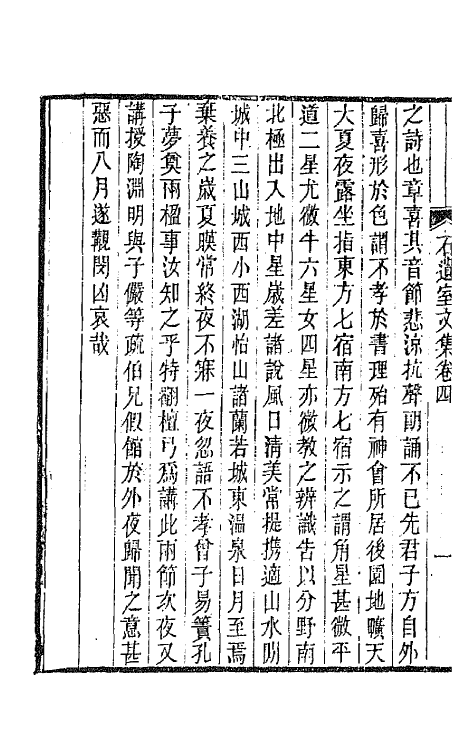 石遺室文集卷四
一
之詩也章喜其音節悲涼抗聲朗誦不已先君子方自外
歸喜形於色謂不孝於書理殆有神會所居後園地曠天
大夏夜露坐指東方七宿南方七宿示之謂角星甚微平
道二星尤微牛六星女四星亦微教之辨識告以分野南
北極出入地中星歲差諸說風日清美常提携適山水明
城中三山城西小西湖怡山諸蘭若城東溫泉日月至焉
棄養之歲夏暵常終夜不寐一夜忽語不孝曾子易簀孔
子夢奠兩楹事汝知之乎特翻檀弓爲講此兩節次夜又
講授陶淵明與子儼等疏伯兄假館於外夜歸聞之意甚
惡而八月遂覯閔凶哀哉